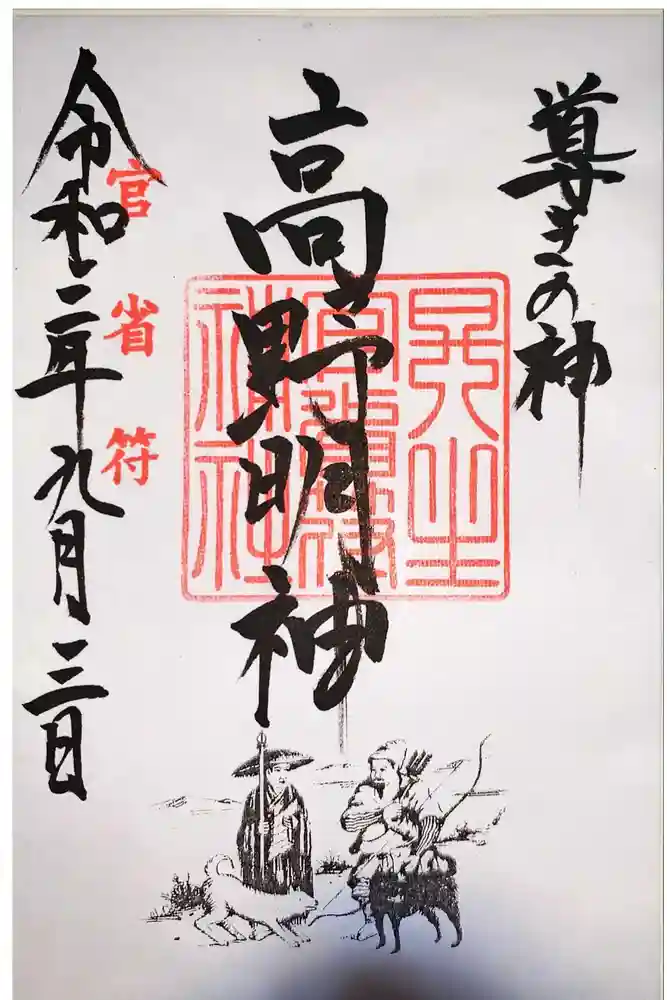 尊きの神
高野明神
丹生
官省符
神社
官省符
令和二年九月三日